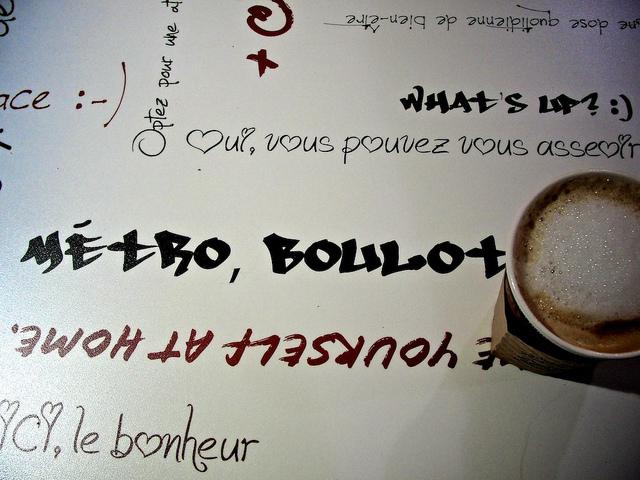 une dose quotidienne de bien-être
Optez pour une
ace :-)
WHAT'S UP? :)
Oui, vous pouvez vous asseoir
MÉTRO, BOULOT
YOURSELF AT HOME.
ici, le bonheur